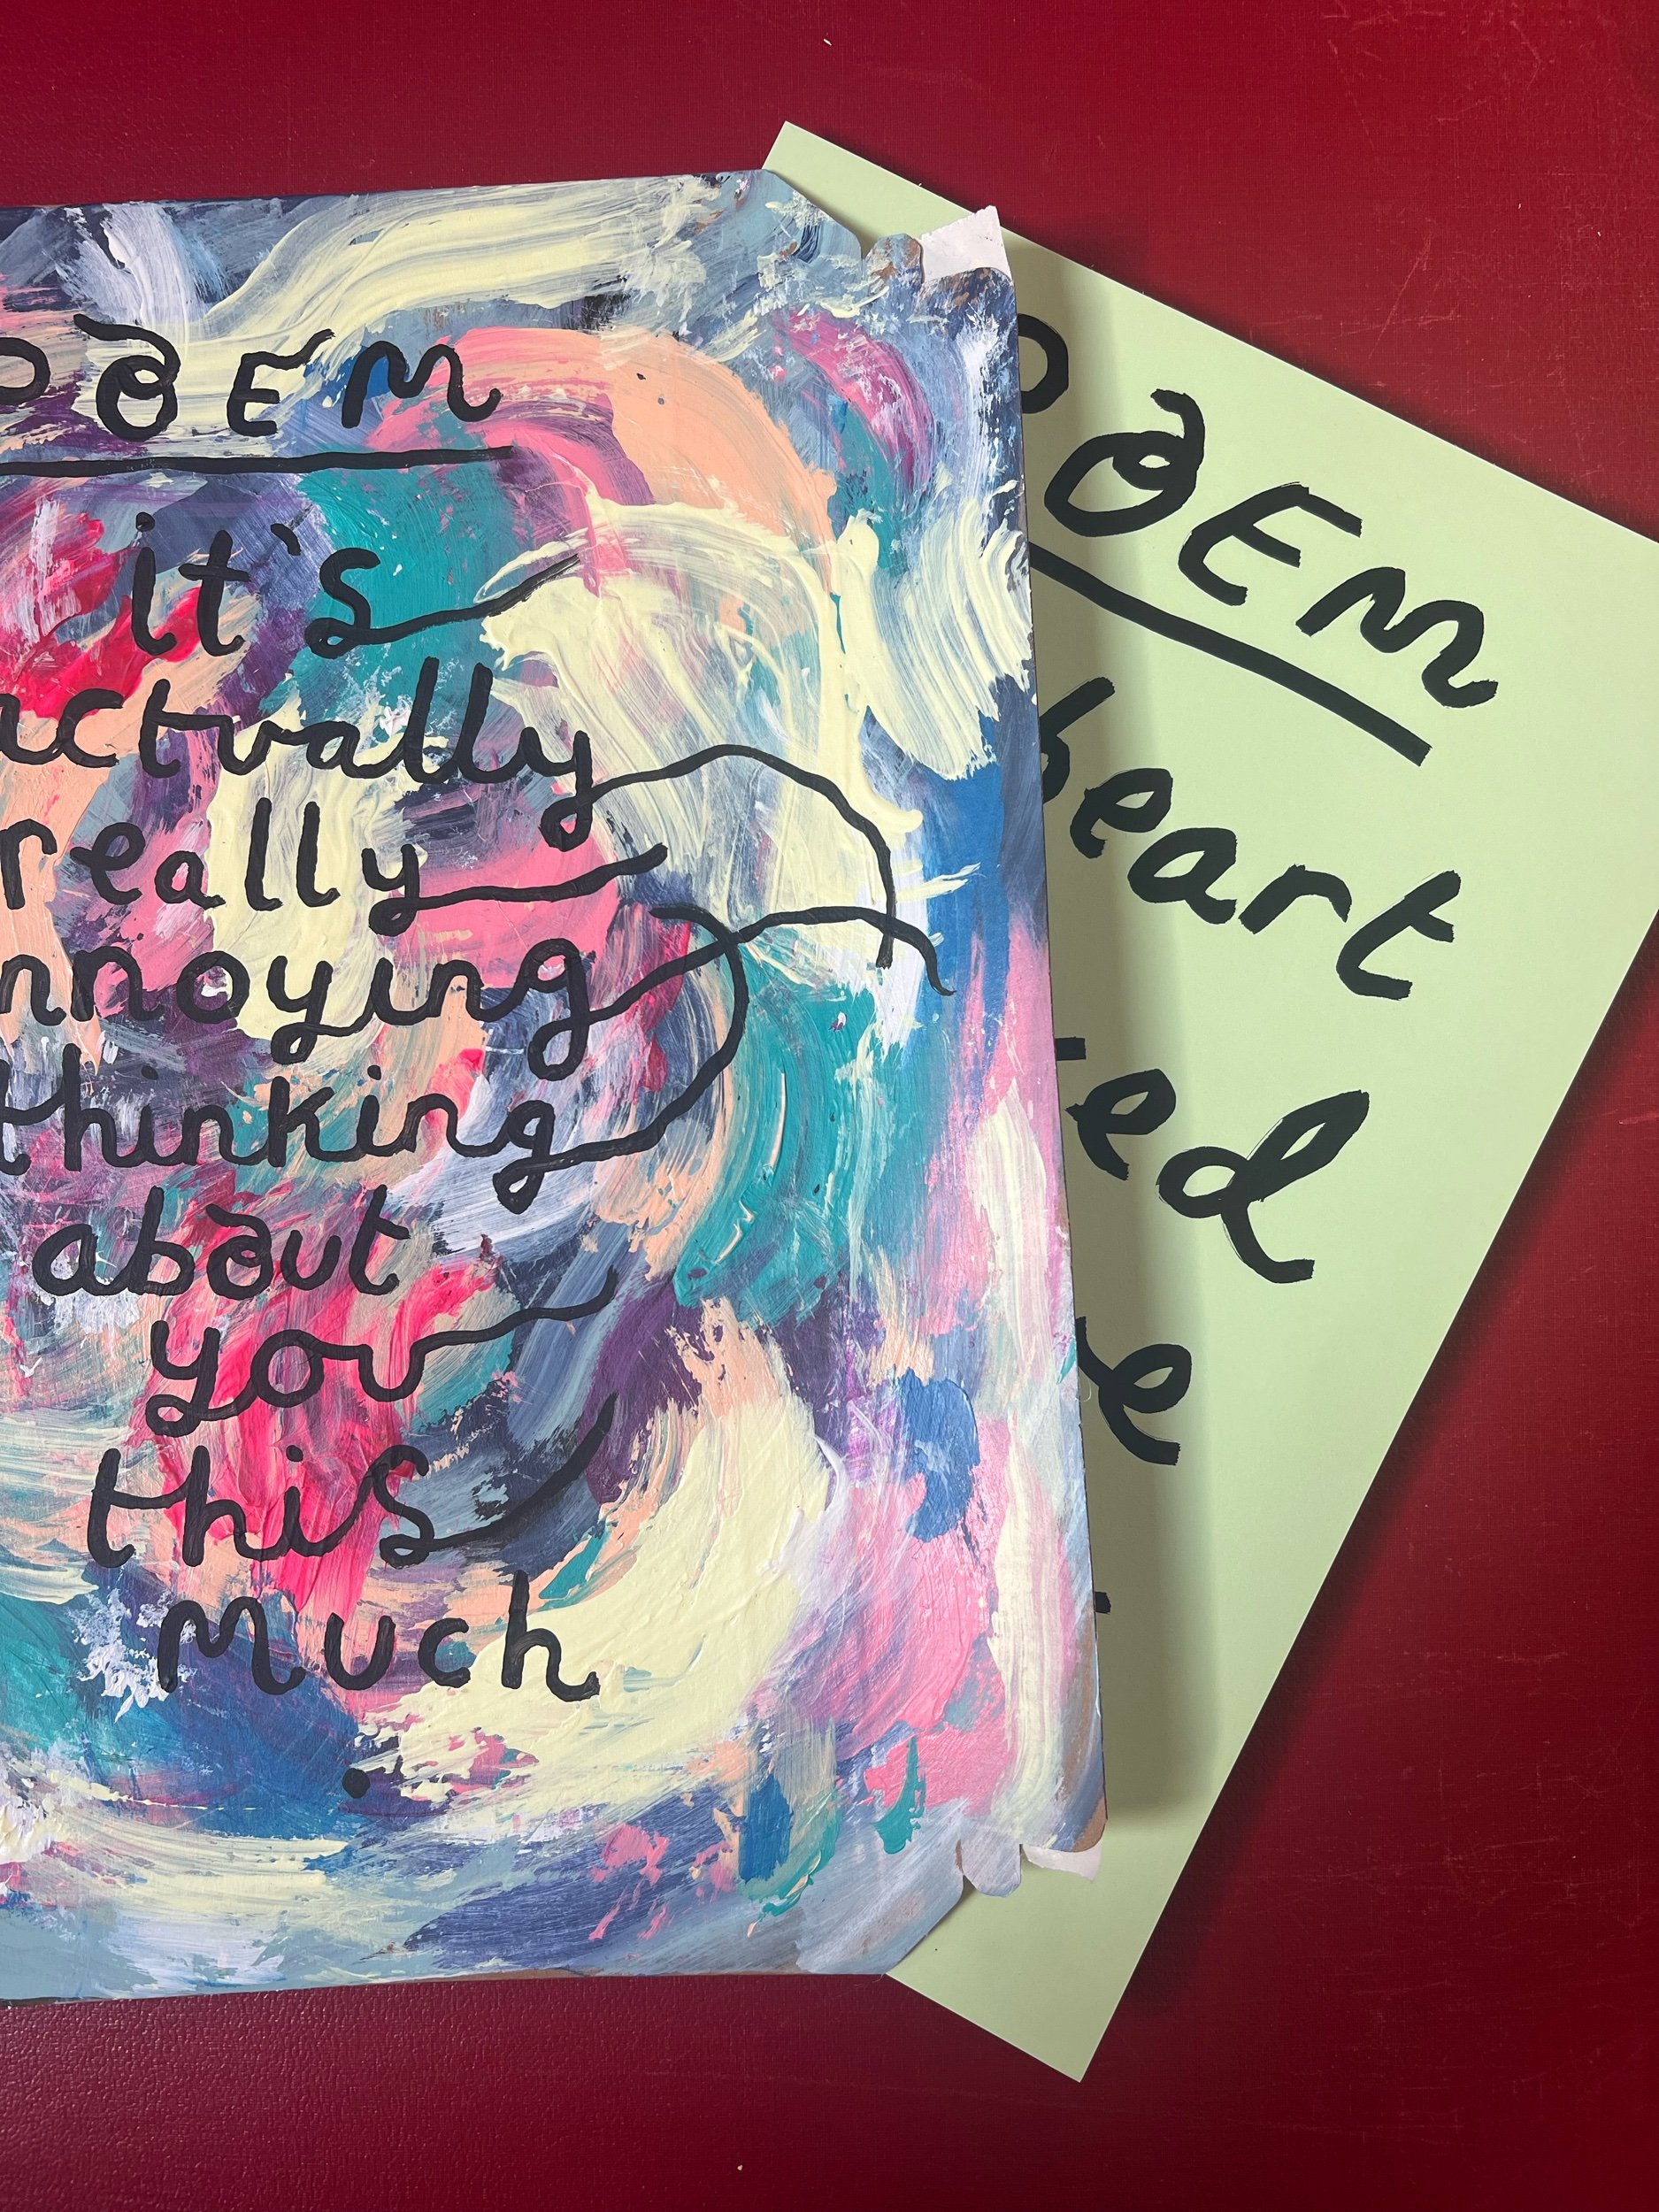 POEM
it's
actually
really
annoying
thinking
about
you
this
much
.
POEM
heart